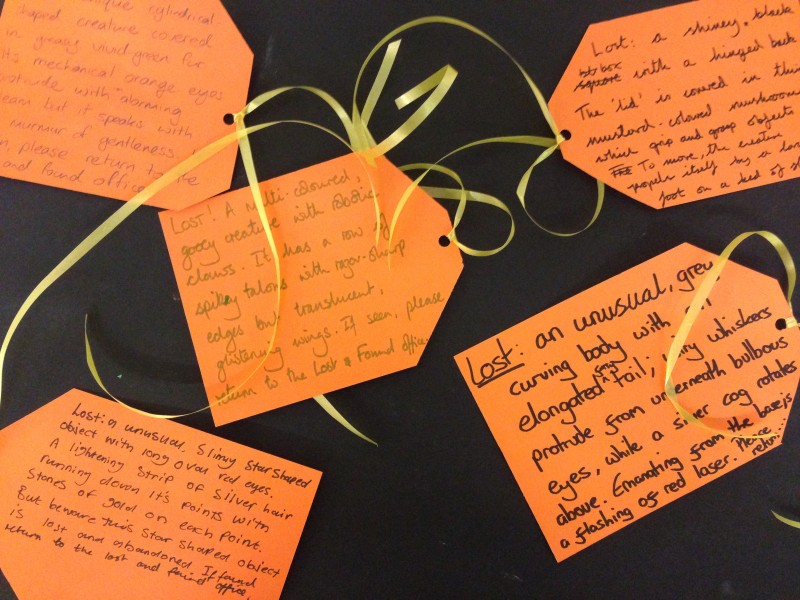 unique cylindrical
shaped creature covered
in greasy vivid green fur.
its mechanical orange eyes
protrude with alarming
but it speaks with
murmur of gentleness.
please return to the
and found office
Lost: a shiney, black
box
square with a hinged back
The 'lid' is covered in thin
mustard-coloured mushroom
which grip and grasp objects
To move, the creature
propels itself by a long
foot on a bed of
LOST! A Multi-coloured,
gooey creature with robotic
claws. It has a row of
spikey talons with razor-sharp
edges but translucent,
glistening wings. If seen, please
return to the Lost & Found office.
Lost: an unusual, grey,
curving body with
elongated grey tail; wiry whiskers
protrude from underneath bulbous
eyes, while a silver cog rotates
above. Emanating from the base is
a flashing of red laser. Please
return...
Lost: a unusual, Slimy Star Shaped
object with long oval red eyes.
A lightening Strip of Silver hair
running down it's points with
Stones of gold on each point.
But beware this Star Shaped object
is lost and abandoned If found
return to the lost and found office.